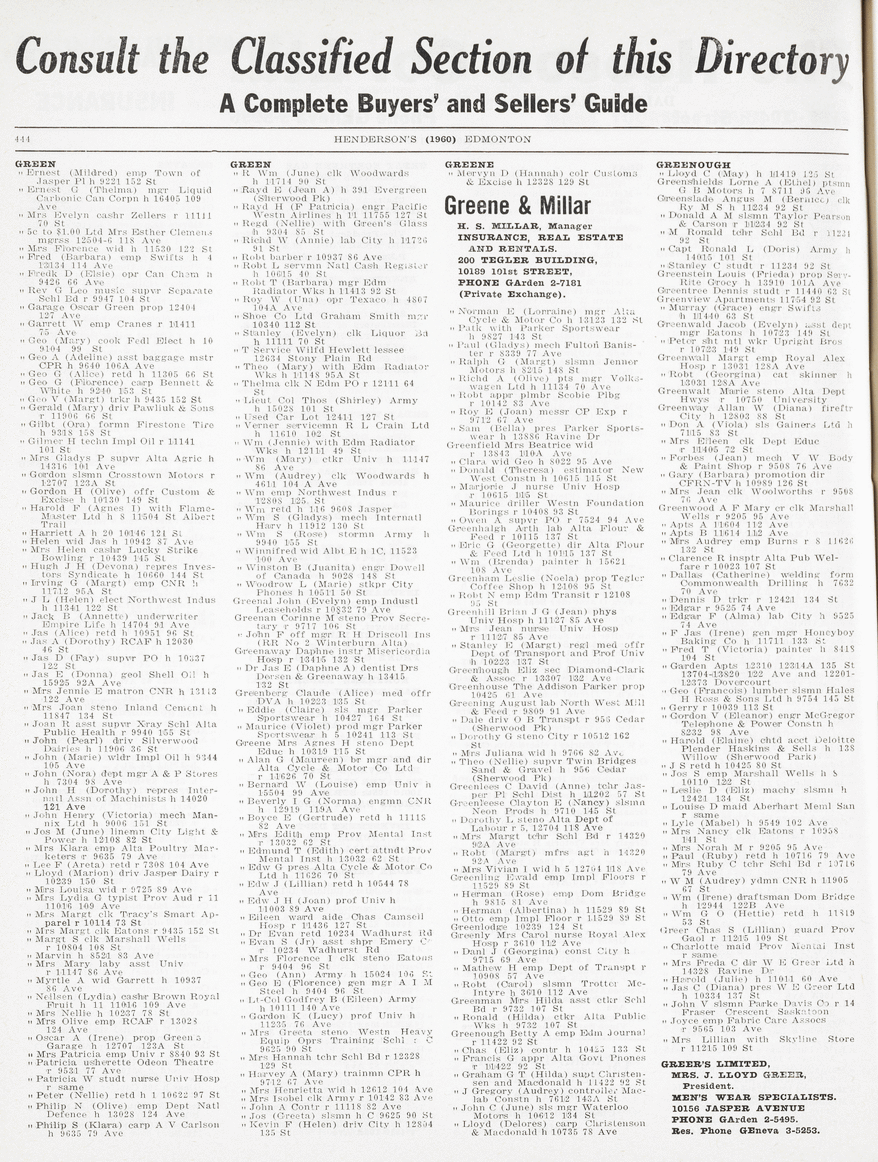 Consult the Classified Section of this Directory
A Complete Buyers' and Sellers' Guide
444
HENDERSON'S (1960) EDMONTON
GREEN
" Ernest (Mildred) emp Town of
Jasper Pl h 9221 152 St
" Ernest G (Thelma) mgr Liquid
Carbonic Can Corpn h 16405 109
Ave
" Mrs Evelyn cashr Zellers r 11111
70 St
" 5c to $1.00 Ltd Mrs Esther Clemens
mgrss 12504-6 118 Ave
" Mrs Florence wid h 11530 122 St
" Fred (Barbara) emp Swifts h 4
12134 114 Ave
" Fredk D (Elsie) opr Can Chem h
9426 66 Ave
" Rev G Leo music supvr Separate
Schl Bd r 9947 104 St
" Garage Oscar Green prop 12404
127 Ave
" Garrett W emp Cranes r 11411
75 Ave
" Geo (Mary) cook Fedl Elect h 10
9104 99 St
" Geo A (Adeline) asst baggage mstr
CPR h 9640 106A Ave
" Geo G (Alice) retd h 11305 66 St
" Geo G (Florence) carp Bennett &
White h 9240 153 St
" Geo V (Margt) trkr h 9435 152 St
" Gerald (Mary) driv Pawliuk & Sons
r 11906 66 St
" Gilbt (Ora) formn Firestone Tire
h 9318 158 St
" Gilmer H techn Impl Oil r 11141
101 St
" Mrs Gladys P supvr Alta Agric h
14316 101 Ave
" Gordon slsmn Crosstown Motors r
12707 123A St
" Gordon H (Olive) offr Custom &
Excise h 10130 149 St
" Harold F (Agnes I) with Flame-
Master Ltd h 8 11504 St Albert
Trail
" Harriett A h 20 10146 121 St
" Helen wid Jas h 10942 87 Ave
" Mrs Helen cashr Lucky Strike
Bowling r 10439 145 St
" Hugh J H (Devona) repres Inves-
tors Syndicate h 10660 144 St
" Irving G (Margt) emp CNR h
11712 95A St
" J L (Helen) elect Northwest Indus
h 11341 122 St
" Jack B (Annette) underwriter
Empire Life h 14704 91 Ave
" Jas (Alice) retd h 10951 96 St
" Jas A (Dorothy) RCAF h 12030
46 St
" Jas D (Fay) supvr PO h 10337
122 St
" Jas E (Donna) geol Shell Oil h
15925 92A Ave
" Mrs Jennie E matron CNR h 13113
122 Ave
" Mrs Joan steno Inland Cement h
11847 134 St
" Joan R asst supvr Xray Schl Alta
Public Health r 9940 155 St
" John (Pearl) driv Silverwood
Dairies h 11906 36 St
" John (Marie) wldr Impl Oil h 9344
105 Ave
" John (Nora) dept mgr A & P Stores
h 7304 98 Ave
" John H (Dorothy) repres Inter-
natl Assn of Machinists h 14020
121 Ave
" John Henry (Victoria) mech Man-
nix Ltd h 9006 151 St
" Jos M (June) linemn City Light &
Power h 12108 82 St
" Mrs Klara emp Alta Poultry Mar-
keters r 9635 79 Ave
" Lee F (Areta) retd r 7308 104 Ave
" Lloyd (Marion) driv Jasper Dairy r
10239 150 St
" Mrs Louisa wid r 9725 89 Ave
" Mrs Lydia G typist Prov Aud r 11
11016 109 Ave
" Mrs Margt clk Tracy's Smart Ap-
parel r 10114 73 St
" Mrs Margt clk Eatons r 9435 152 St
" Margt S clk Marshall Wells
r 10804 108 St
" Marvin h 8524 83 Ave
" Mrs Mary laby asst Univ
r 11147 86 Ave
" Myrtle A wid Garrett h 10937
86 Ave
" Neilsen (Lydia) cashr Brown Royal
Fruit h 11 11016 109 Ave
" Mrs Nellie h 10237 78 St
" Mrs Olive emp RCAF r 13028
124 Ave
" Oscar A (Irene) prop Greens
Garage h 12707 123A St
" Mrs Patricia emp Univ r 8840 93 St
" Patricia usherette Odeon Theatre
r 9531 77 Ave
" Patricia W studt nurse Univ Hosp
r same
" Peter (Nellie) retd h 1 10622 97 St
" Philip N (Olive) emp Dept Natl
Defence h 13028 124 Ave
" Philip S (Klara) carp A V Carlson
h 9635 79 Ave
GREEN
" R Wm (June) clk Woodwards
h 11714 90 St
" Rayd E (Jean A) h 391 Evergreen
(Sherwood Pk)
" Rayd H (F Patricia) engr Pacific
Westn Airlines h 11 11755 127 St
" Regd (Nellie) with Green's Glass
h 9304 85 St
" Richd W (Annie) lab City h 11726
91 St
" Robt barber r 10937 86 Ave
" Robt L servmn Natl Cash Register
h 10615 40 St
" Robt T (Barbara) mgr Edm
Radiator Wks h 11413 92 St
" Roy W (Una) opr Texaco h 4807
104A Ave
" Shoe Co Ltd Graham Smith mgr
10340 112 St
" Stanley (Evelyn) clk Liquor Bd
h 11111 70 St
" T Service Wilfd Hewlett lessee
12634 Stony Plain Rd
" Theo (Mary) with Edm Radiator
Wks h 11148 95A St
" Thelma clk N Edm PO r 12111 64
St
" Lieut Col Thos (Shirley) Army
h 15028 101 St
" Used Car Lot 12411 127 St
" Verner servicemn R L Crain Ltd
h 11610 102 St
" Wm (Jennie) with Edm Radiator
Wks h 12111 49 St
" Wm (Mary) ctkr Univ h 11147
86 Ave
" Wm (Audrey) clk Woodwards h
4611 104 A Ave
" Wm emp Northwest Indus r
12808 125 St
" Wm retd h 116 9608 Jasper
" Wm S (Gladys) mech Internatl
Harv h 11912 130 St
" Wm S (Rose) stormn Army h
9940 155 St
" Winnifred wid Albt E h 1C, 11523
100 Ave
" Winston B (Juanita) engr Dowell
of Canada h 9028 148 St
" Woodrow L (Marie) stkpr City
Phones h 10511 50 St
Greenal John (Evelyn) emp Industl
Leaseholds r 10832 79 Ave
Greenan Corinne M steno Prov Secre-
tary r 9717 106 St
" John F off mgr R H Driscoll Ins
(RR No 2 Winterburn Alta)
Greenaway Daphne instr Misericordia
Hosp r 13415 132 St
" Dr Jas E (Daphne A) dentist Drs
Dorsen & Greenaway h 13415
132 St
Greenberg Claude (Alice) med offr
DVA h 10223 135 St
" Eddie (Claire) sls mgr Parker
Sportswear h 10427 164 St
" Maurice (Violet) prod mgr Parker
Sportswear h 5 10241 113 St
Greene Mrs Agnes H steno Dept
Educ h 10319 115 St
" Alan G (Maureen) br mgr and dir
Alta Cycle & Motor Co Ltd
r 11626 70 St
" Bernard W (Louise) emp Univ h
15504 99 Ave
" Beverly I G (Norma) engmn CNR
h 12919 119A Ave
" Boyce E (Gertrude) retd h 11115
82 Ave
" Mrs Edith emp Prov Mental Inst
r 13032 62 St
" Edmund T (Edith) cert attndt Prov
Mental Inst h 13032 62 St
" Edw G pres Alta Cycle & Motor Co
Ltd h 11626 70 St
" Edw J (Lillian) retd h 10544 78
Ave
" Edw J H (Joan) prof Univ h
14003 89 Ave
" Eileen ward aide Chas Camsell
Hosp r 11436 127 St
" Dr Evan retd 10234 Wadhurst Rd
" Evan S (Jr) asst shpr Emery C
r 10234 Wadhurst Rd
" Mrs Florence I clk steno Eatons
r 9404 96 St
" Geo (Ann) Army h 15024 106 St
" Geo E (Florence) gen mgr A I M
Steel h 9404 96 St
" Lt-Col Godfrey B (Eileen) Army
h 10111 140 Ave
" Gordon K (Lucy) prof Univ h
11235 76 Ave
" Mrs Greeta steno Westn Heavy
Equip Oprs Training Schl r C
9625 90 St
" Mrs Hannah tchr Schl Bd r 12328
129 St
" Harvey A (Mary) trainmn CPR h
9712 67 Ave
" Mrs Henrietta wid h 12612 104 Ave
" Mrs Isobel clk Army r 10142 83 Ave
" John A Contr r 11118 82 Ave
" Jos (Greeta) slsmn h C 9625 90 St
" Kevin F (Helen) driv City h 12804
135 St
GREENE
" Mervyn D (Hannah) colr Customs
& Excise h 12328 129 St
Greene & Millar
H. S. MILLAR, Manager
INSURANCE, REAL ESTATE
AND RENTALS.
200 TEGLER BUILDING,
10189 101st STREET,
PHONE GArden 2-7181
(Private Exchange).
" Norman E (Lorraine) mgr Alta
Cycle & Motor Co h 13123 132 St
" Patk with Parker Sportswear
h 9827 143 St
" Paul (Gladys) mech Fulton Banis-
ter r 8339 77 Ave
" Ralph G (Margt) slsmn Jenner
Motors h 8215 148 St
" Richd A (Olive) pts mgr Volks-
wagen Ltd h 11134 70 Ave
" Robt appr plmbr Scobie Plbg
r 10142 83 Ave
" Roy E (Joan) messr CP Exp r
9712 67 St
" Sam (Bella) pres Parker Sports-
wear h 13886 Ravine Dr
Greenfield Mrs Beatrice wid
r 13843 110A Ave
" Clara wid Geo h 8022 95 Ave
" Donald (Theresa) estimator New
West Constn h 10615 115 St
" Marjorie J nurse Univ Hosp
r 10615 115 St
" Maurice driller Westn Foundation
Borings r 10408 93 St
" Owen A supvr PO r 7524 94 Ave
Greenhalgh Arth lab Alta Flour &
Feed r 10115 137 St
" Eric G (Georgette) dir Alta Flour
& Feed Ltd h 10115 137 St
" Wm (Brenda) painter h 15621
108 Ave
Greenham Leslie (Noela) prop Tegler
Coffee Shop h 12108 95 St
" Robt N emp Edm Transit r 12108
95 St
Greenhill Brian J G (Jean) phys
Univ Hosp h 11127 85 Ave
" Mrs Jean nurse Univ Hosp
r 11127 85 Ave
" Stanley E (Margt) regl med offr
Dept of Transport and Prof Univ
h 10223 137 St
Greenhough Eliz sec Diamond-Clark
& Assoc r 13307 132 Ave
Greenhouse The Addison Parker prop
10425 61 Ave
Greening August lab North West Mill
& Feed r 9809 91 Ave
" Dale driv O B Transpt r 956 Cedar
(Sherwood Pk)
" Dorothy G steno City r 10512 162
St
" Mrs Juliana wid h 9766 82 Ave
" Theo (Nellie) supvr Twin Bridges
Sand & Gravel h 956 Cedar
(Sherwood Pk)
Greenlees C David (Anne) tchr Jas-
per Pl Schl Dist h 11202 57 St
Greenleese Clayton E (Nancy) slsmn
Neon Prods h 9710 145 St
" Dorothy L steno Alta Dept of
Labour r 5, 12704 118 Ave
" Mrs Margt tchr Schl Bd r 14320
92A Ave
" Robt (Margt) mfrs agt h 14320
92A Ave
" Mrs Vivian I wid h 5 12704 118 Ave
Greenling Ewald emp Impl Floors r
11529 89 St
" Herman (Rose) emp Dom Bridge
h 9815 81 Ave
" Herman (Albertina) h 11529 89 St
" Otto emp Impl Floor r 11529 89 St
Greenlodge 10239 124 St
Greenly Mrs Carol nurse Royal Alex
Hosp r 3610 112 Ave
" Danl J (Georgina) const City h
9715 69 Ave
" Mathew H emp Dept of Transpt r
10908 57 Ave
" Robt (Carol) slsmn Trotter Mc-
Intyre h 3610 112 Ave
Greenman Mrs Hilda asst ctkr Schl
Bd r 9732 107 St
" Ronald (Hilda) ctkr Alta Public
Wks h 9732 107 St
Greenough Betty A emp Edm Journal
r 11422 92 St
" Chas (Eliz) contr h 10455 133 St
" Francis G appr Alta Govt Phones
r 11422 92 St
" Graham G T (Hilda) supt Christen-
sen and Macdonald h 11422 92 St
" J Gregory (Audrey) controller Mac-
lab Constn h 7612 143A St
" John C (June) sls mgr Waterloo
Motors h 10612 134 St
" Lloyd (Delores) carp Christenson
& Macdonald h 10735 78 Ave
GREENOUGH
" Lloyd C (May) h 11419 125 St
Greenshields Lorne A (Ethel) ptsmn
G B Motors h 7 8711 95 Ave
Greenslade Angus M (Bernice) clk
Ry M S h 11234 92 St
" Donald A M slsmn Taylor Pearson
& Carson r 11234 92 St
" M Ronald tchr Schl Bd r 11221
92 St
" Capt Ronald L (Doris) Army h
14015 101 St
" Stanley C studt r 11234 92 St
Greenstein Louis (Frieda) prop Serv-
Rite Grocy h 13910 101A Ave
Greentree Dennis studt r 11440 63 St
Greenview Apartments 11754 92 St
" Murray (Grace) engr Swifts
h 11440 63 St
Greenwald Jacob (Evelyn) asst dept
mgr Eatons h 10723 149 St
" Peter sht mtl wkr Upright Bros
r 10723 149 St
Greenwall Margt emp Royal Alex
Hosp r 13031 128A Ave
" Robt (Georgina) cat skinner h
13031 128A Ave
Greenwalt Marie steno Alta Dept
Hwys r 10759 University
Greenway Allan W (Diana) fireftr
City h 12802 88 St
" Don A (Viola) sls Gainers Ltd h
7115 83 St
" Mrs Eileen clk Dept Educ
r 11405 72 St
" Forbes (Jean) mech V W Body
& Paint Shop r 9508 76 Ave
" Gary (Barbara) promotion dir
CFRN-TV h 10989 126 St
" Mrs Jean clk Woolworths r 9508
76 Ave
Greenwood A F Mary cr clk Marshall
Wells r 9205 95 Ave
" Apts A 11604 112 Ave
" Apts B 11614 112 Ave
" Mrs Audrey emp Burns r 8 11626
132 St
" Clarence R insptr Alta Pub Wel-
fare r 10023 107 St
" Dallas (Catherine) welding form
Commonwealth Drilling h 7632
70 Ave
" Dennis D trkr r 12421 134 St
" Edgar r 9525 74 Ave
" Edgar F (Alma) lab City h 9525
74 Ave
" F Jas (Irene) gen mgr Honeyboy
Baking Co h 11711 133 St
" Fred T (Victoria) painter h 8418
104 St
" Garden Apts 12310 12314A 135 St
13704-13820 122 Ave and 12201-
12373 Dovercourt
" Geo (Francois) lumber slsmn Hales
H Ross & Sons Ltd h 9754 145 St
" Gerry r 10039 113 St
" Gordon V (Eleanor) engr McGregor
Telephone & Power Constn h
8232 98 Ave
" Harold (Elaine) chtd acct Deloitte
Plender Haskins & Sells h 138
Willow (Sherwood Park)
" J S retd h 10425 80 St
" Jos S emp Marshall Wells h 8
10110 122 St
" Leslie D (Eliz) machy slsmn h
12421 134 St
" Louise D maid Aberhart Meml San
r same
" Lyle (Mabel) h 9549 102 Ave
" Mrs Nancy clk Eatons r 10958
141 St
" Mrs Norah M r 9205 95 Ave
" Paul (Ruby) retd h 10716 79 Ave
" Mrs Ruby C tchr Schl Bd r 10716
79 Ave
" W M (Audrey) ydmn CNR h 11905
67 St
" Wm (Irene) draftsman Dom Bridge
h 12944 122B Ave
" Wm G O (Hettie) retd h 11819
53 St
Greer Chas S (Lillian) guard Prov
Gaol r 11215 109 St
" Charlotte maid Prov Mental Inst
r same
" Mrs Freda C dir W E Greer Ltd h
14328 Ravine Dr
" Harold (Julie) h 11011 60 Ave
" Jas C (Diana) pres W E Greer Ltd
h 10334 137 St
" John V slsmn Parke Davis Co r 14
Fraser Crescent Saskatoon
" Joyce emp Fabric Care Assocs
r 9565 103 Ave
" Mrs Lillian with Skyline Store
r 11215 109 St
GREER'S LIMITED,
MRS. J. LLOYD GREER,
President.
MEN'S WEAR SPECIALISTS.
10156 JASPER AVENUE
PHONE GArden 2-5495.
Res. Phone GEneva 3-5253.